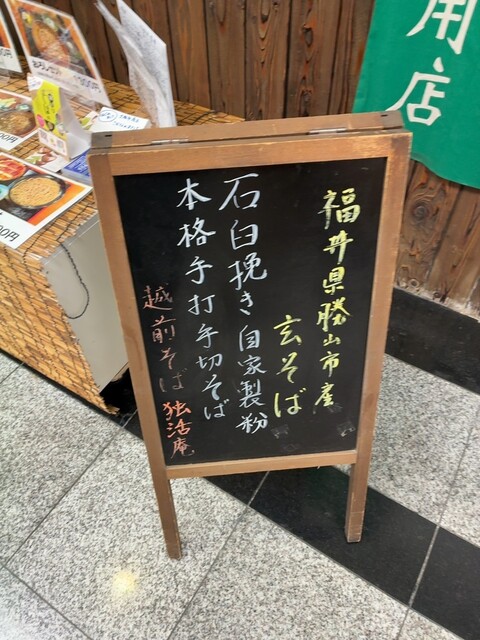 福井県勝山市産
玄そば
石臼挽き自家製粉
本格手打手切そば
越前そば 独活庵
用店